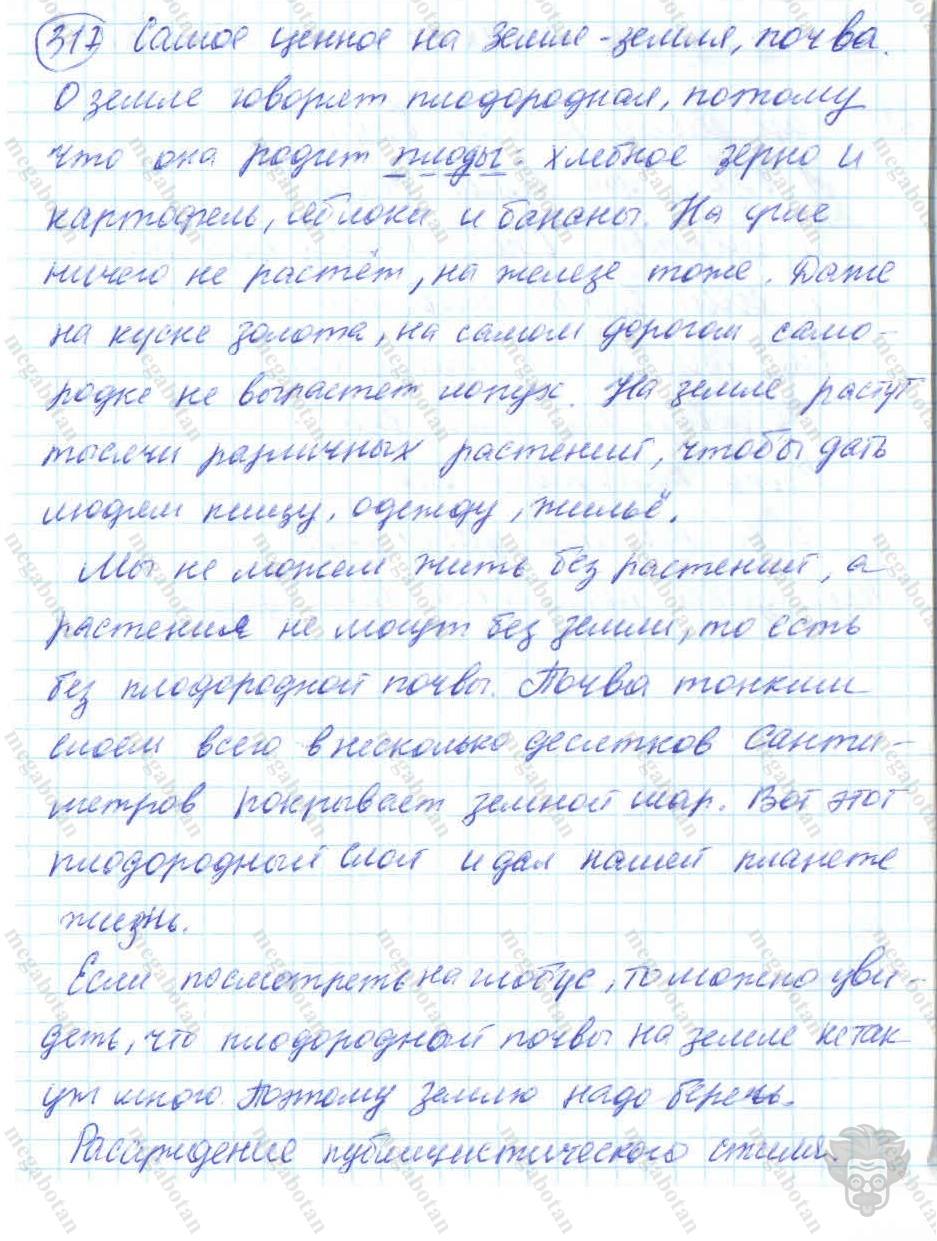 317 Самое ценное на Земле - земля, почва.
О земле говорят плодородная, потому
что она родит плоды: хлебное зерно и
картофель, яблоки и бананы. На угле
ничего не растёт, на железе тоже. Даже
на куске золота, на самом дорогом само-
родке не вырастет лопух. На земле растут
тысячи различных растений, чтобы дать
людям пищу, одежду, жильё.
Мы не можем жить без растений, а
растения не могут без земли, то есть
без плодородной почвы. Почва тонким
слоем всего в несколько десятков санти-
метров покрывает земной шар. Вот этот
плодородный слой и дал нашей планете
жизнь.
Если посмотреть на глобус, то можно уви-
деть, что плодородной почвы на земле не так
уж много. Поэтому землю надо беречь.
Рассуждение публицистического стиля.
megabotan